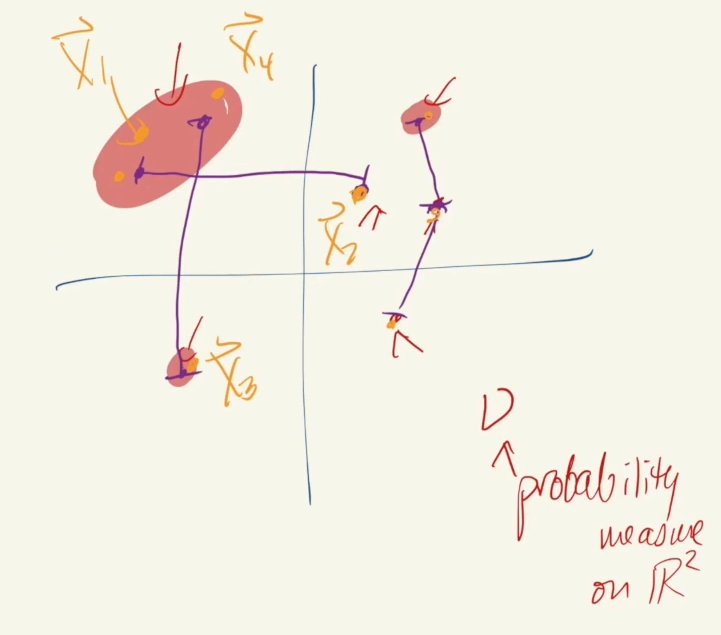 X⃗1
X⃗4
X⃗2
X⃗3
ν
probability
measure
on ℝ²